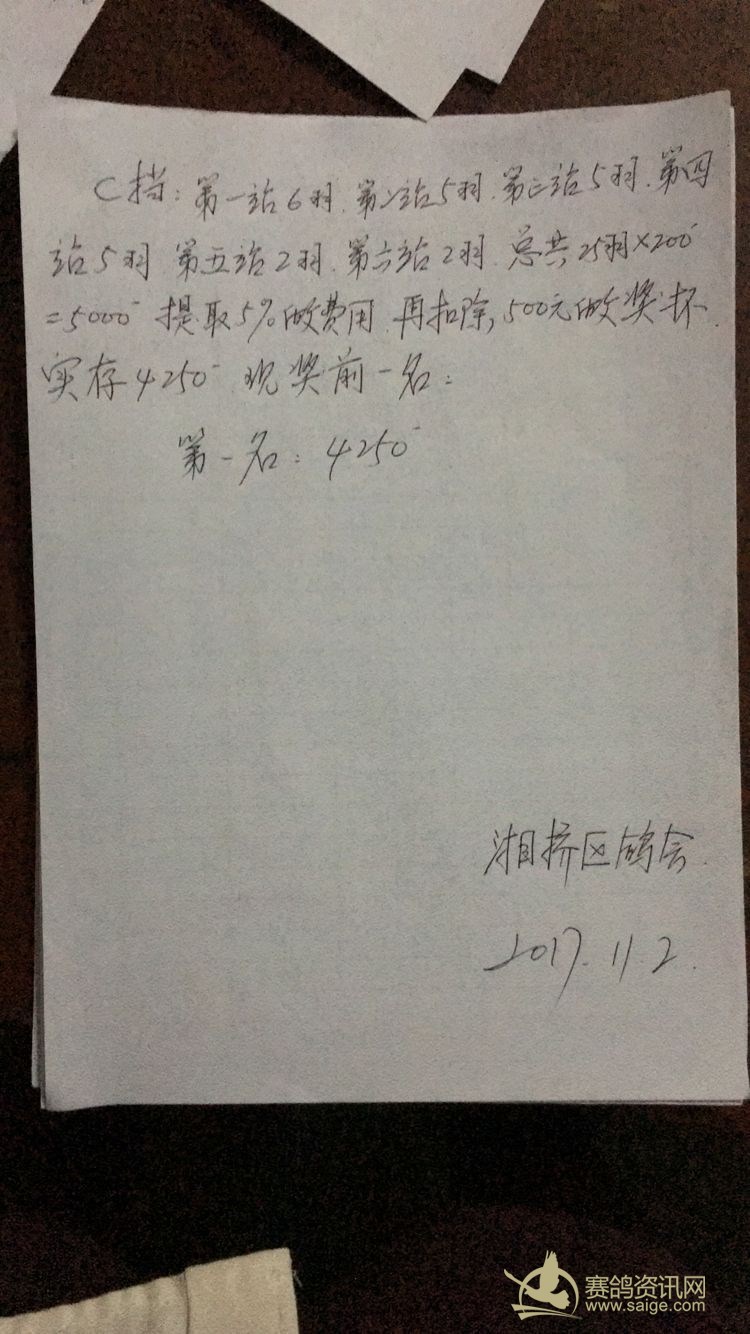 C挡:第一站6羽.第二站5羽.第三站5羽.第四
站5羽.第五站2羽.第六站2羽.总共25羽×200-
=5000-提取5%做费用.再扣除,500元做奖杯.
实存4250-现奖前一名:
第一名:4250-
湘桥区鸽会.
2017.11.2.
赛鸽资讯网
www.saige.com